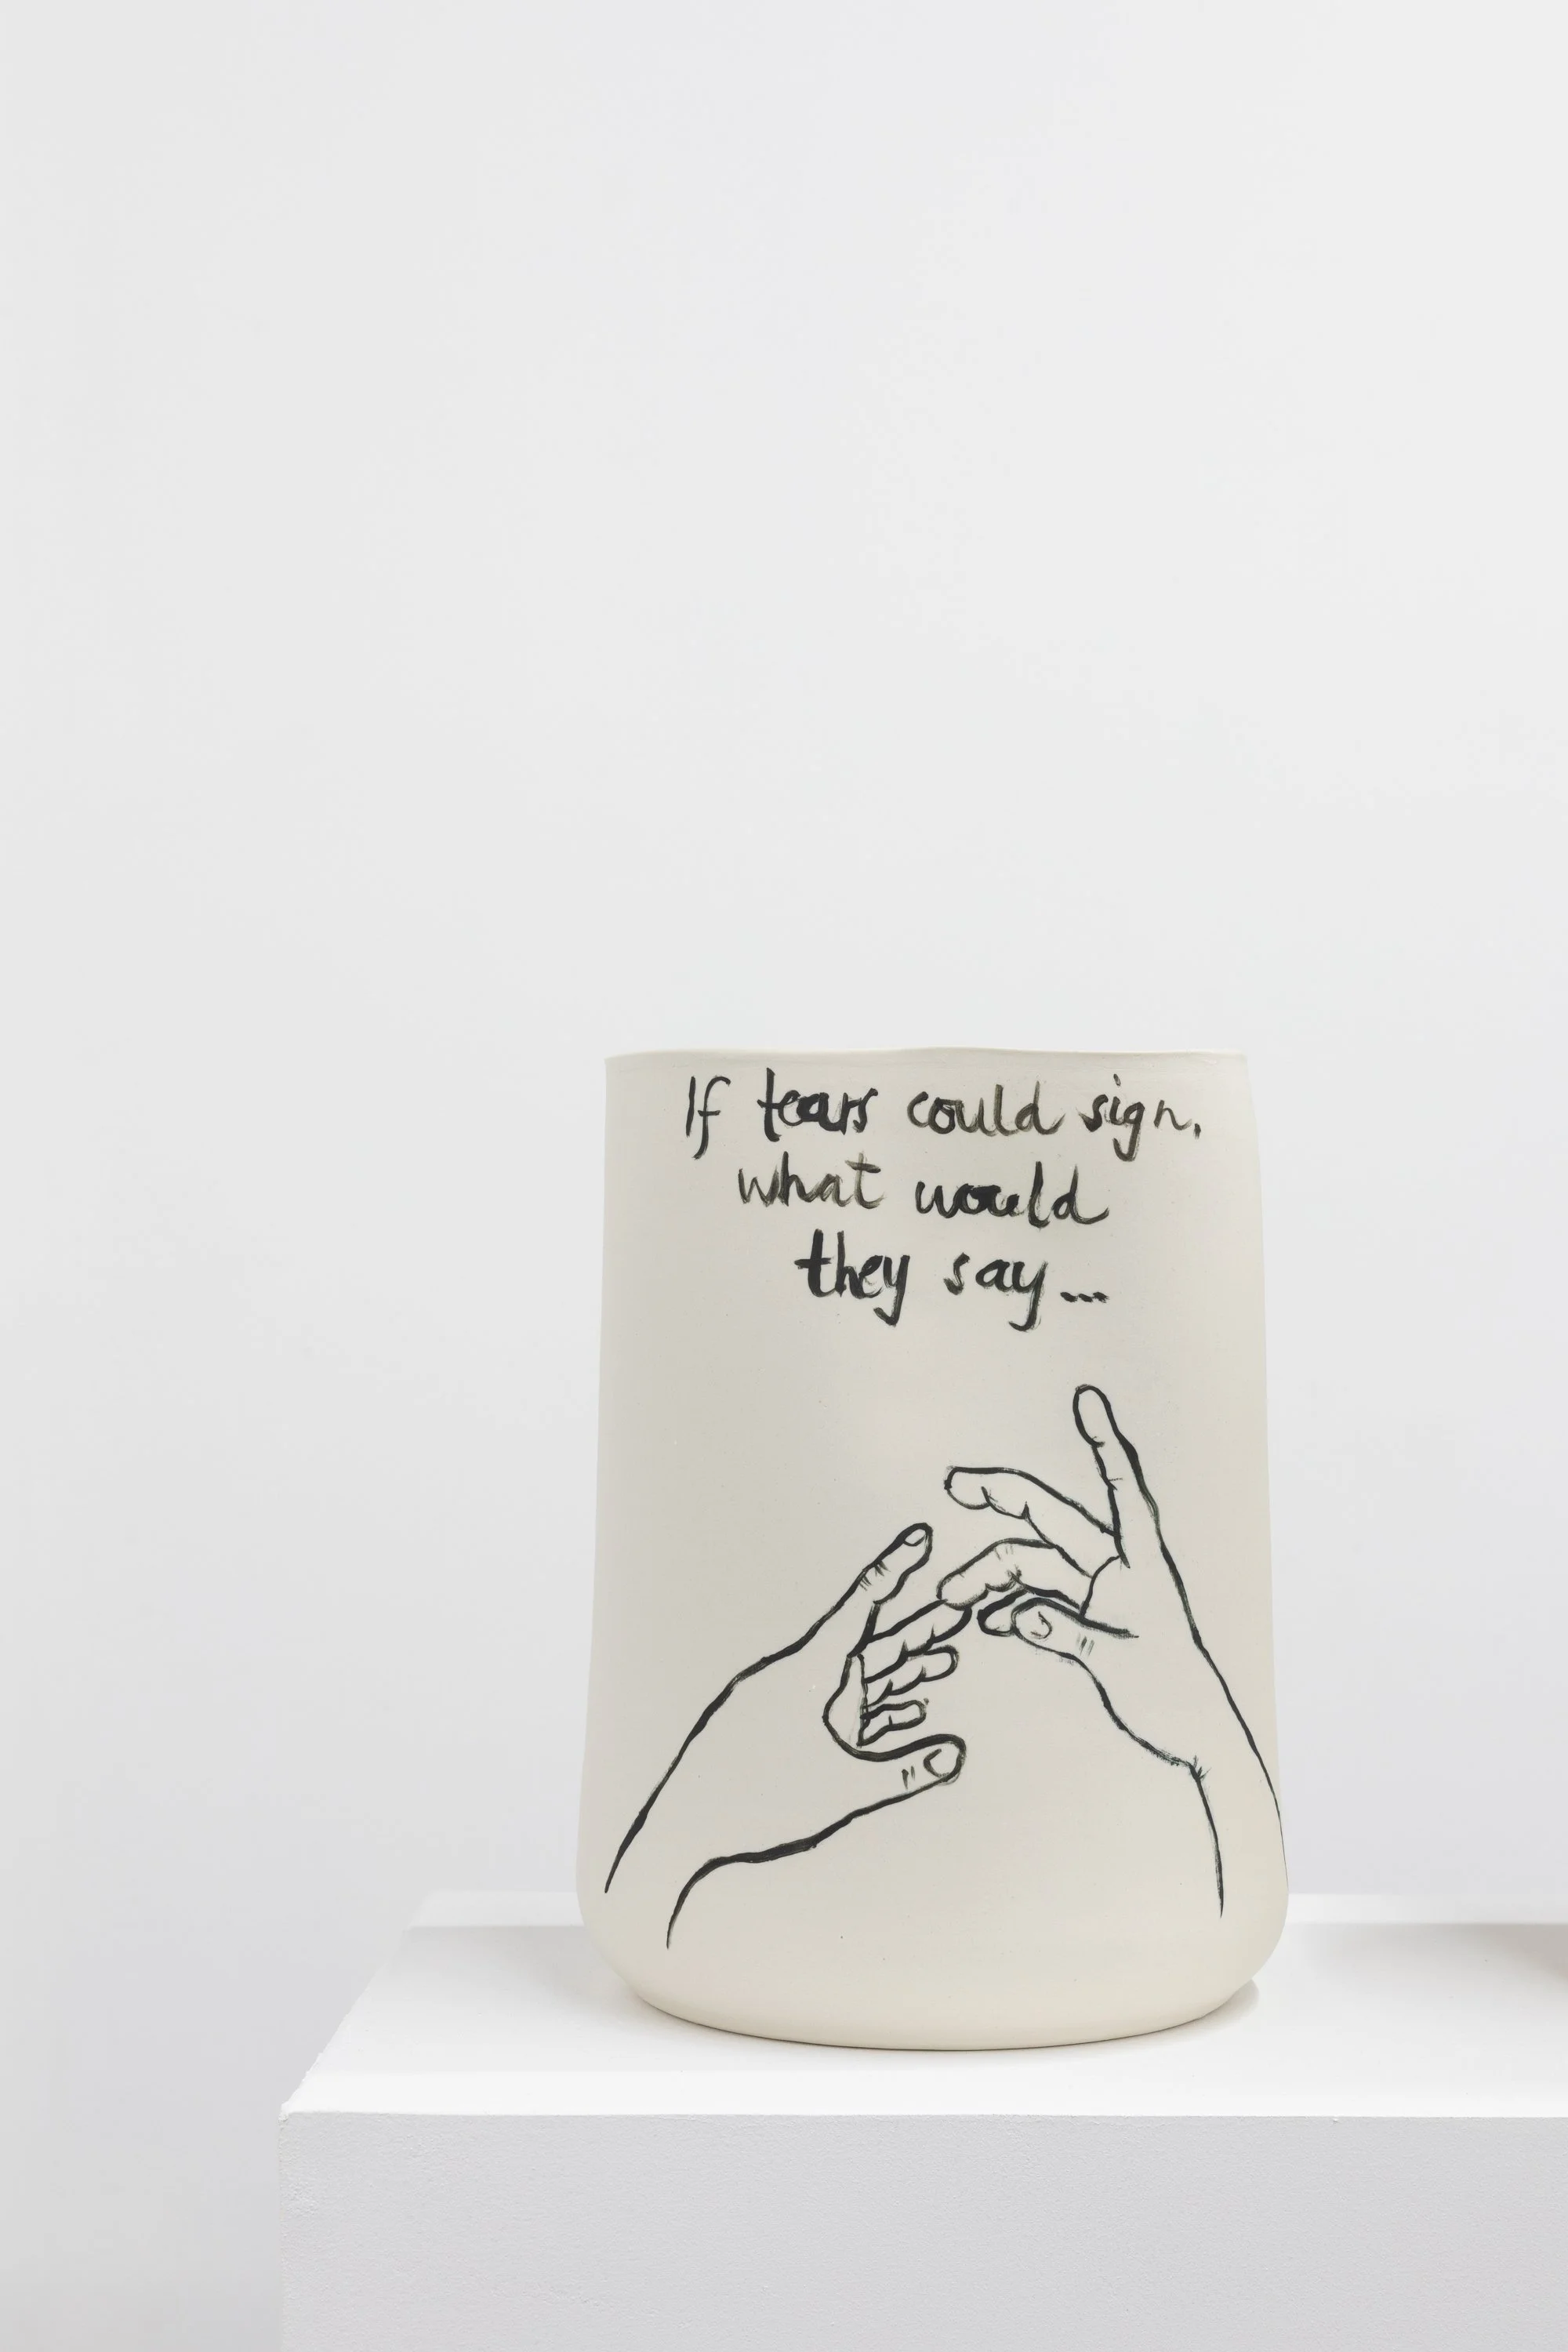 If tears could sign,
what would
they say...